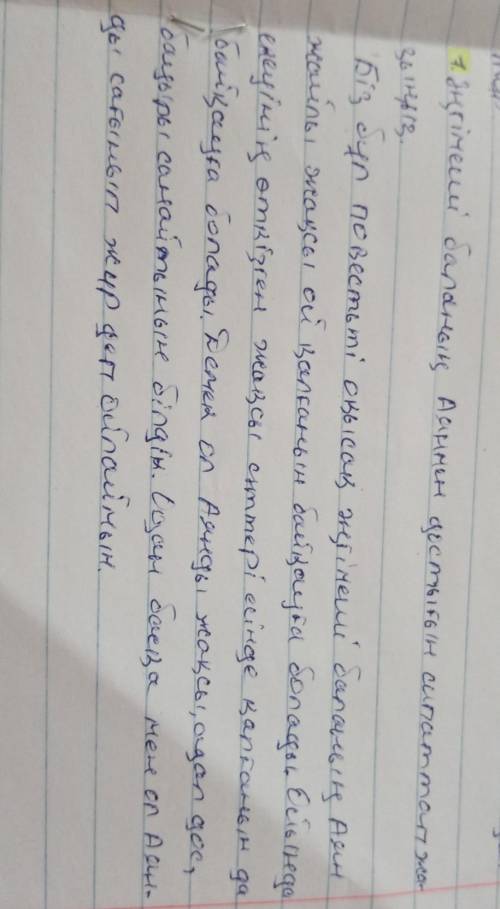 7. Әңгімеші баланың Аянмен достығын сипаттап жа-
зыңыз.
Біз бұл повестьті оқысақ әңгімеші баланың Аян
жайлы жақсы ой қалғанын байқауға болады. Ойында
екеуінің өткізген жақсы сәттері есінде қалғанын да
байқауға болады. Демек ол Аянды жақсы, адал дос,
бауыры санайтынын білдік. Одан басқа мен ол Аян-
ды сағынып жүр деп ойлаймын.